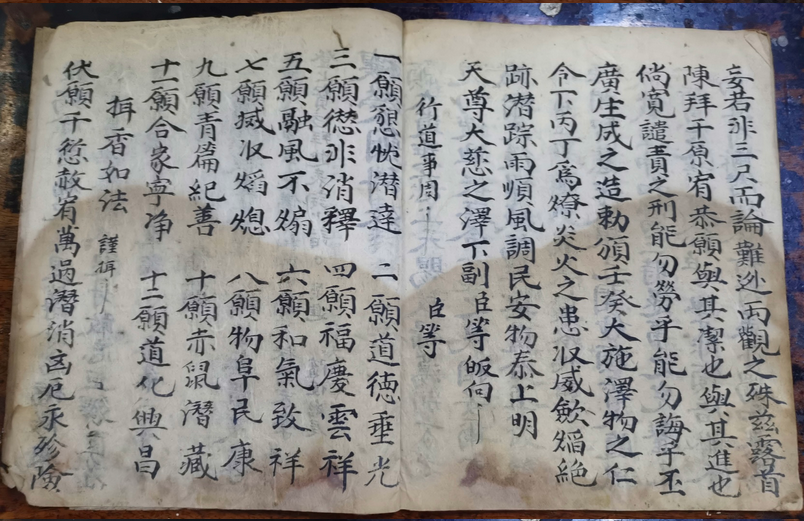 妄若非三尺而論難逃兩觀之殊兹露首
陳拜千原宥恭願與其潔也與其進也
倘寬譴責之刑能勿勞乎能勿誨乎丕
廣生成之造勅頒壬癸大施澤物之仁
令下丙丁爲燎炎火之患収威歛熖絕
跡潜踪雨順風調民安物泰上明
天尊大慈之澤下副臣等皈向
行道事周 臣等
一願懇忱潜達 二願道德垂光
三願愆非消釋 四願福慶雲祥
五願融風不煽 六願和氣致祥
七願威収熖熄 八願物阜民康
九願青篇紀善 十願赤鼠潛藏
十一願合家寧净 十二願道化興昌
香如法 謹
伏願千愆赦宥萬過潛消凶厄永殄險